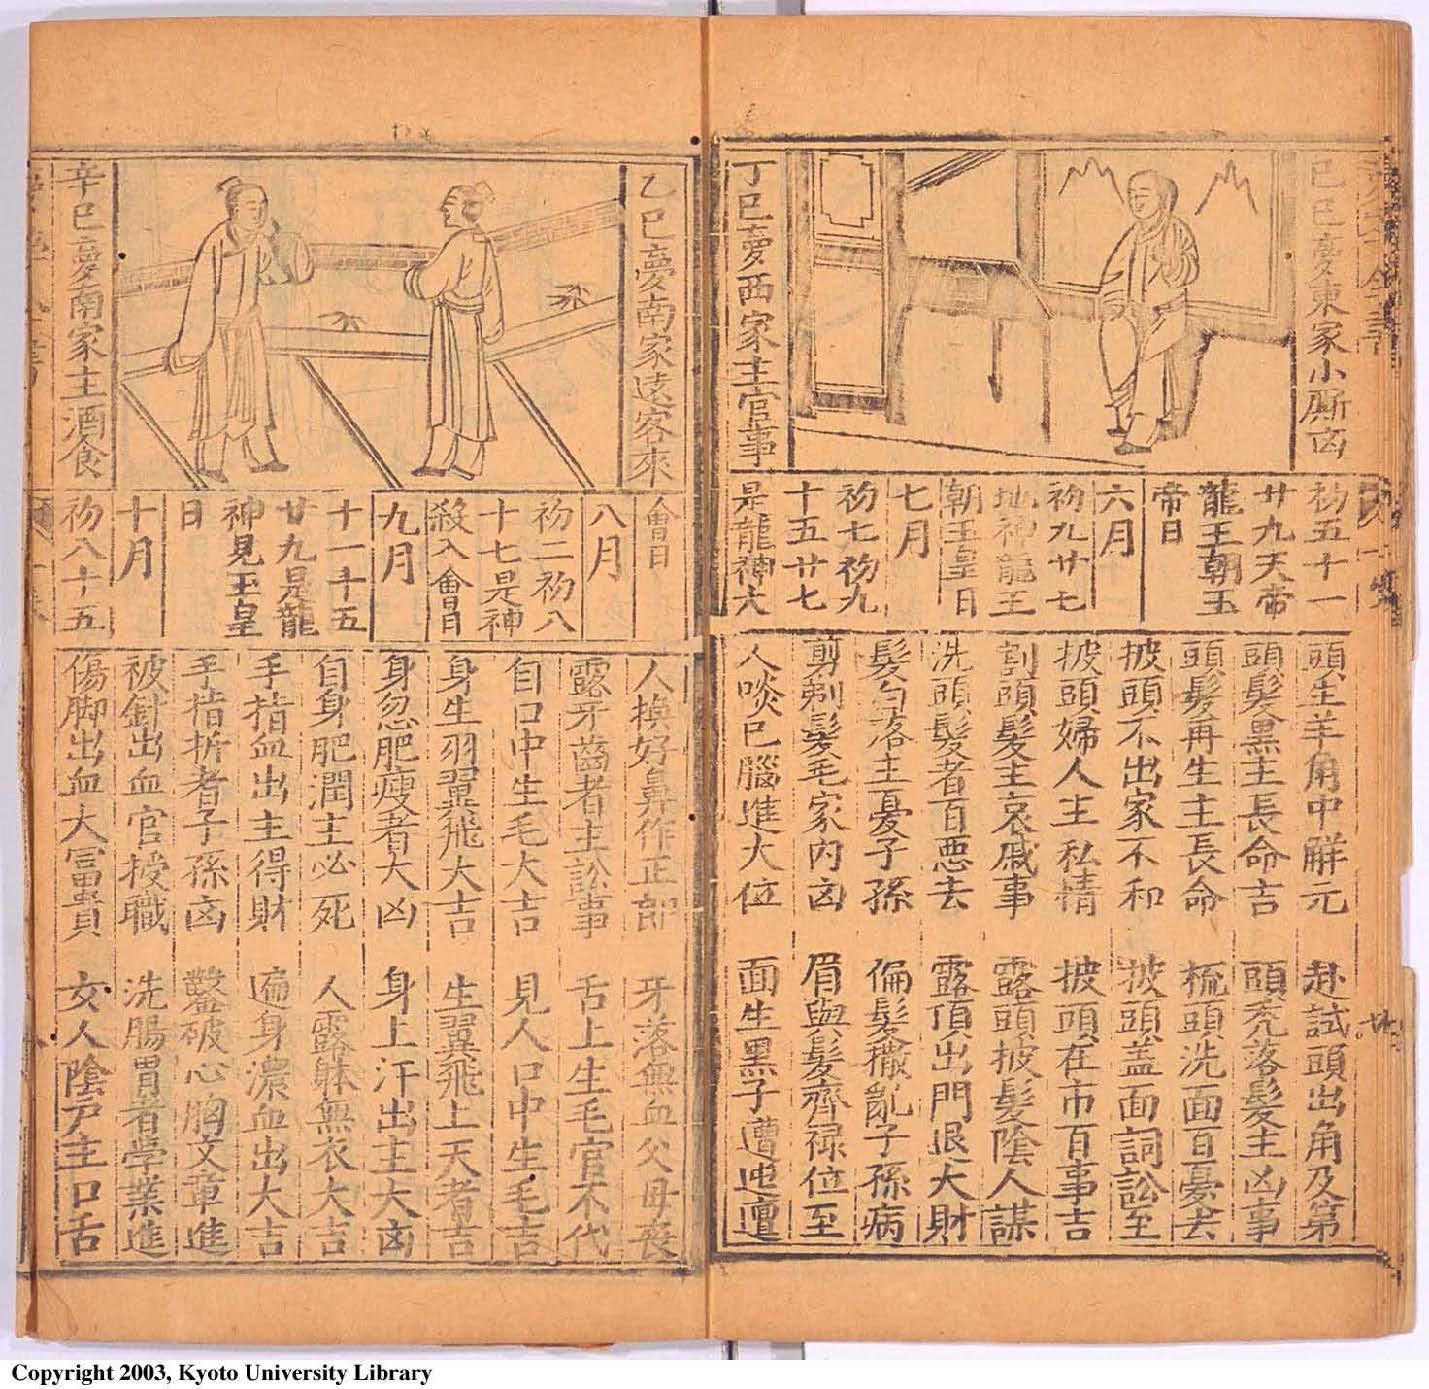 己巳夢東家小厮凶
丁巳夢西家主官事
初五十一
廿九天帝
龍王朝玉
帝日
六月
初九廿七
地神龍王
朝玉皇日
七月
初七初九
十五廿七
是龍神大
頭生羊角中觧元
赴試頭出角及第
頭髮黑主長命吉
頭禿落髮主凶事
頭髮再生主長命
梳頭洗面百憂去
披頭不出家不和
披頭盖面詞訟至
披頭婦人主私情
披頭在市百事吉
割頭髮主哀戚事
露頭披髮陰人謀
洗頭髮者百惡去
露頂出門退大財
髮白落主憂子孫
偏髮撒亂子孫病
剪剃髮毛家內凶
眉與髮齊禄位至
人啖已腦進大位
面生黑子遭迍邅
乙巳夢南家遠客來
辛巳夢南家主酒食
會日
八月
初二初八
十七是神
殺入會日
九月
十一十五
廿九是龍
神見玉皇
日
十月
初八十五
人換好鼻作正郎
牙落無血父母喪
露牙齒者主訟事
舌上生毛官不代
自口中生毛大吉
見人口中生毛吉
身生羽翼飛大吉
生翼飛上天者吉
身忽肥瘦者大凶
身上汗出主大凶
自身肥潤主必死
人露躰無衣大吉
手指血出主得財
遍身濃血出大吉
手指折者子孫凶
鑿破心胸文章進
被針出血官授職
洗腸胃者学業進
傷脚出血大冨貴
女人陰戸主口舌
Copyright 2003, Kyoto University Library